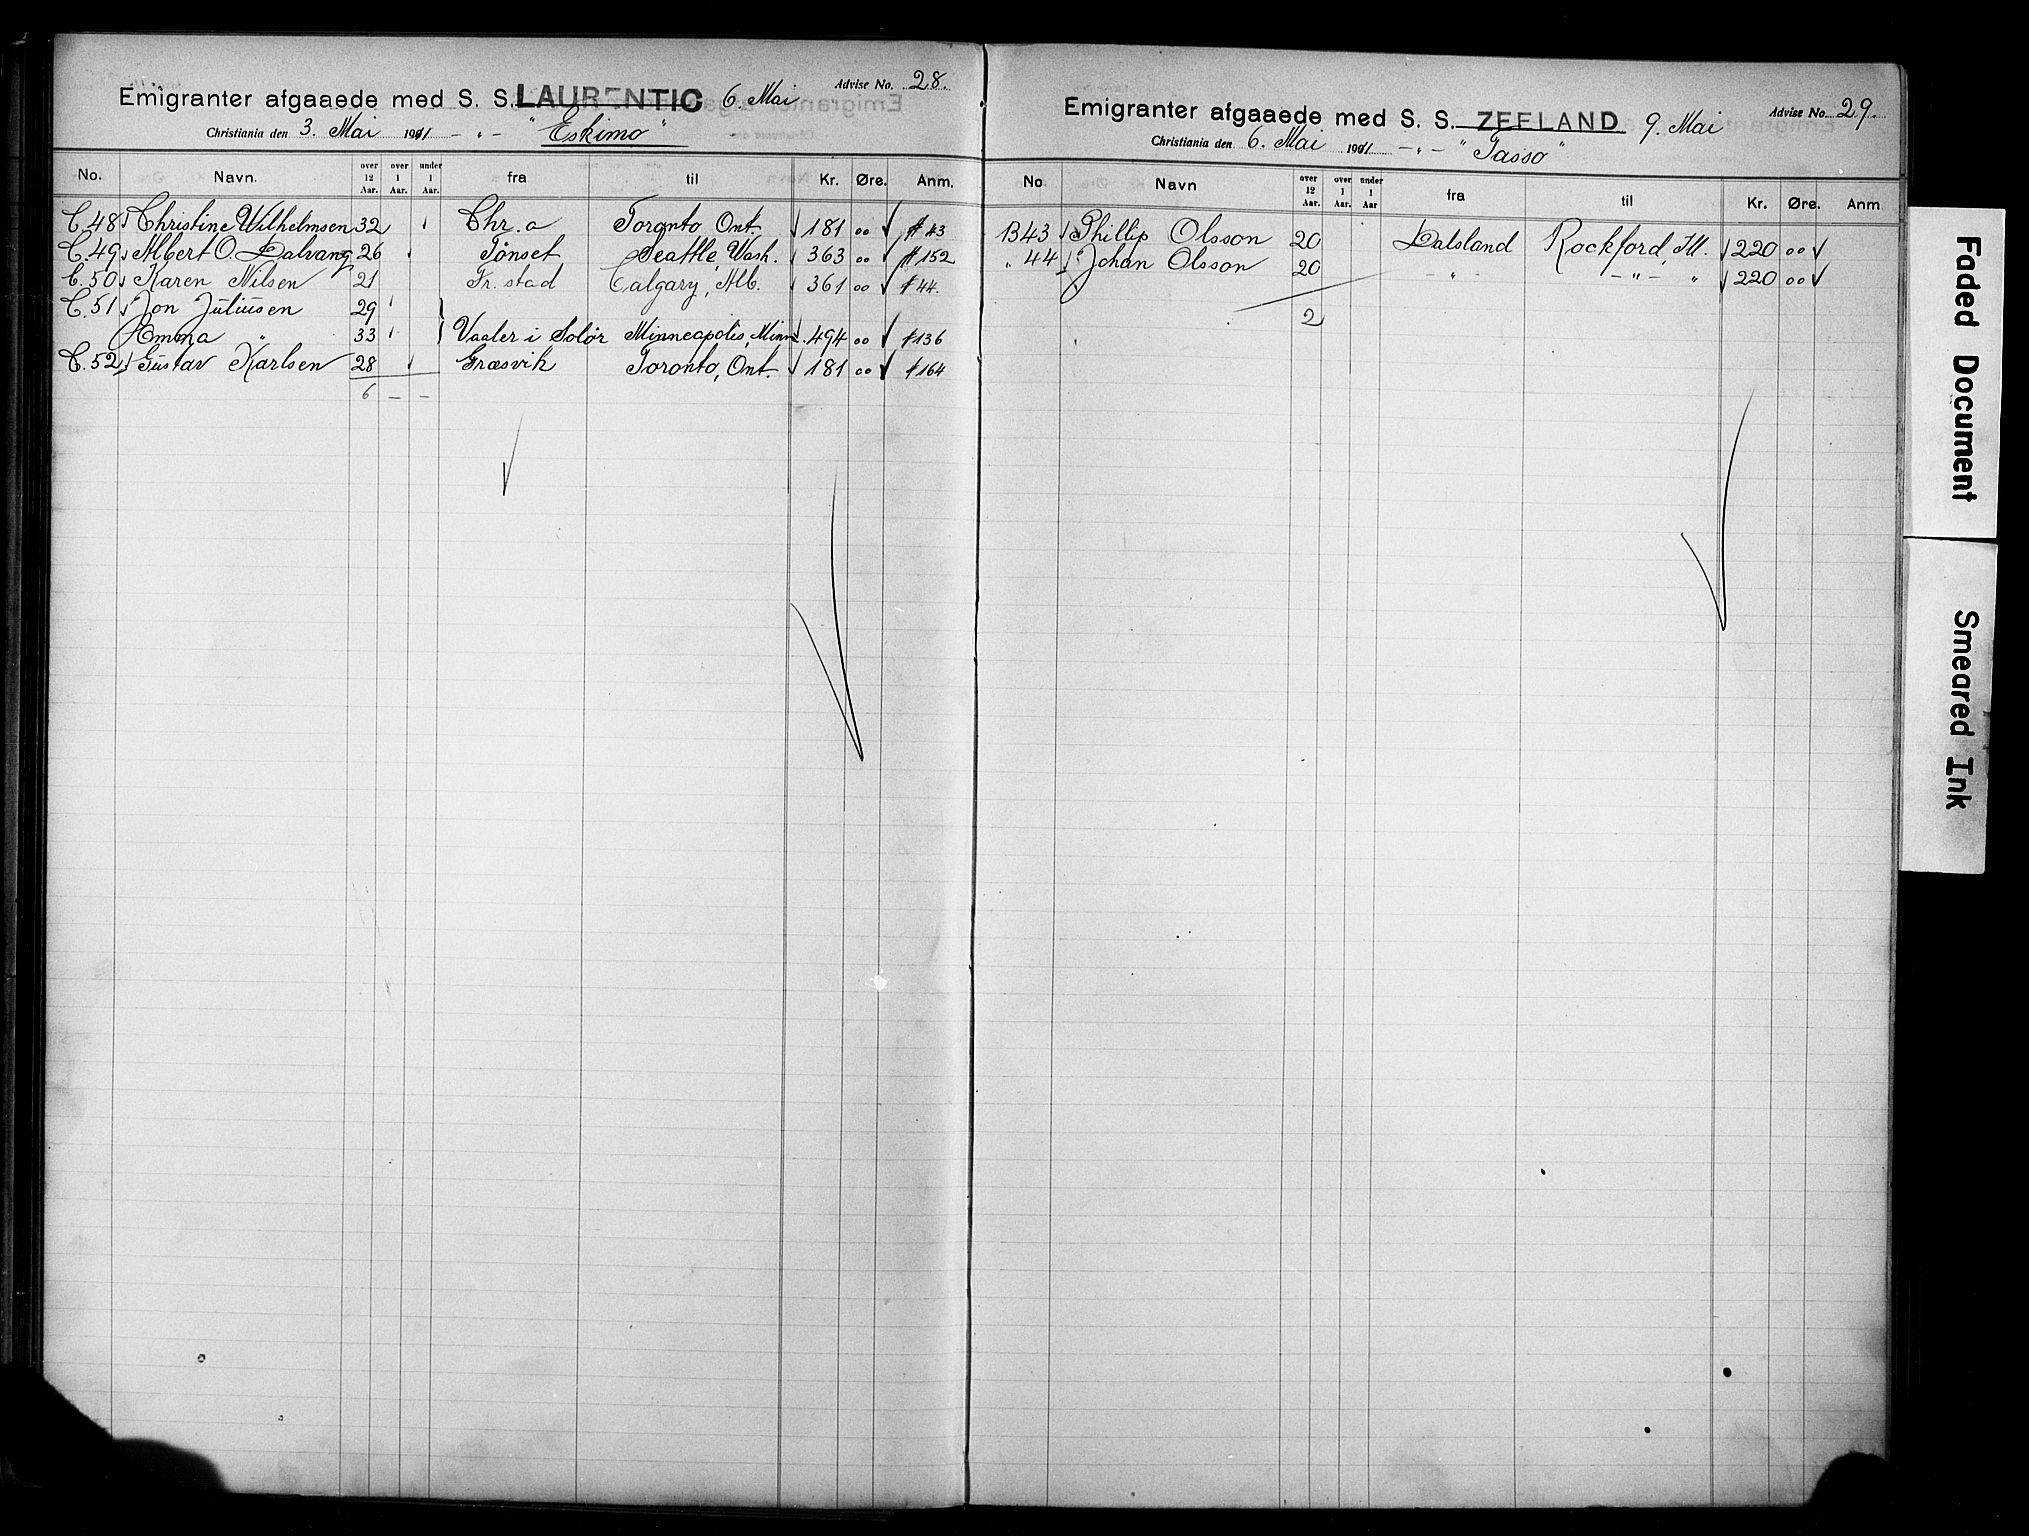 Emigranter afgaaede med S. S. LAURENTIC 6. Mai Advise No. 28.
Christiania den 3. Mai 1911 — „ — "Eskimo"
No. Navn. over 12 Aar. over 1 Aar. under 1 Aar. fra til Kr. Øre. Anm.
C.48 Christine Wilhelmsen 32 Chr.a Toronto Ont. 181 00 # 43
C.49 Albert O. Dalvang 26 Tønset Seattle, Wash. 363 00 # 152
C.50 Karen Nilsen 21 Fr.stad Calgary, Alb. 361 00 # 44.
C.51 Jon Juliusen 29
Emma „ 33 } Vaaler i Solør Minneapolis, Minn. 494 00 # 136
C.52 Gustav Karlsen 28 Græsvik Toronto, Ont. 181 00 # 164
6 — —
Emigranter afgaaede med S. S. ZEELAND 9. Mai Advise No. 29.
Christiania den 6. Mai 1911 — „ — "Tasso"
No Navn over 12 Aar. over 1 Aar. under 1 Aar fra til Kr. Øre. Anm
B43 Phillip Olsson 20 Dalsland Rockford, Ill. 220 00
„ 44 Johan Olsson 20 — „ — — „ — „ 220 00
2
Faded Document
Smeared Ink